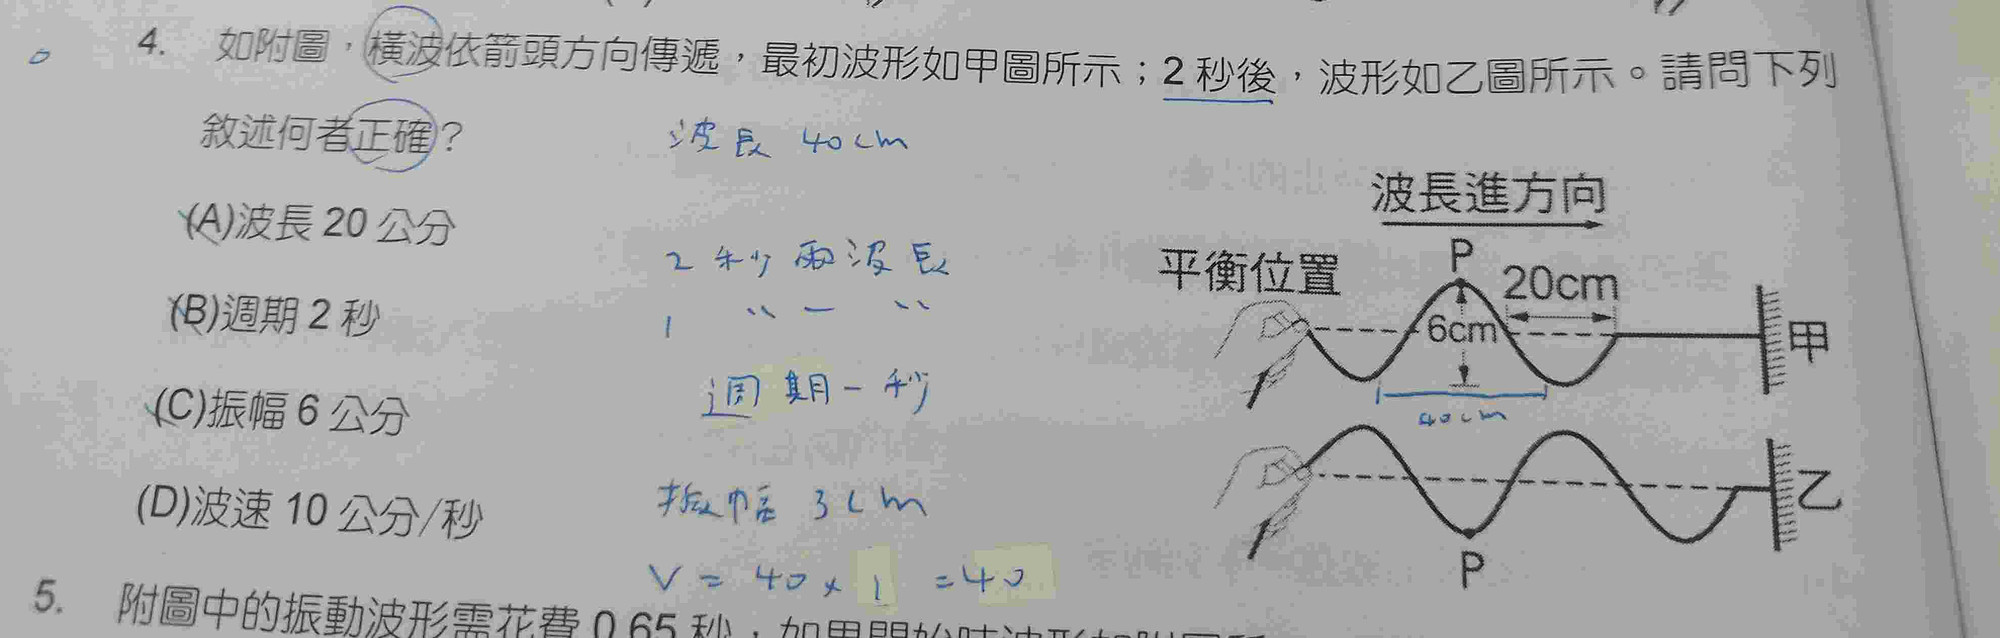 4. 如附圖，橫波依箭頭方向傳遞，最初波形如甲圖所示；2 秒後，波形如乙圖所示。請問下列
敘述何者正確？
波長 40cm
(A)波長 20 公分
2 秒兩波長
(B)週期 2 秒
1 〃 一 〃
週期一秒
(C)振幅 6 公分
振幅 3cm
(D)波速 10 公分/秒
V = 40 × 1 = 40
波長進方向
平衡位置
P
20cm
6cm
甲
40cm
乙
P
5. 附圖中的振動波形需花費 0.65 秒，如果開始時波形如附圖所